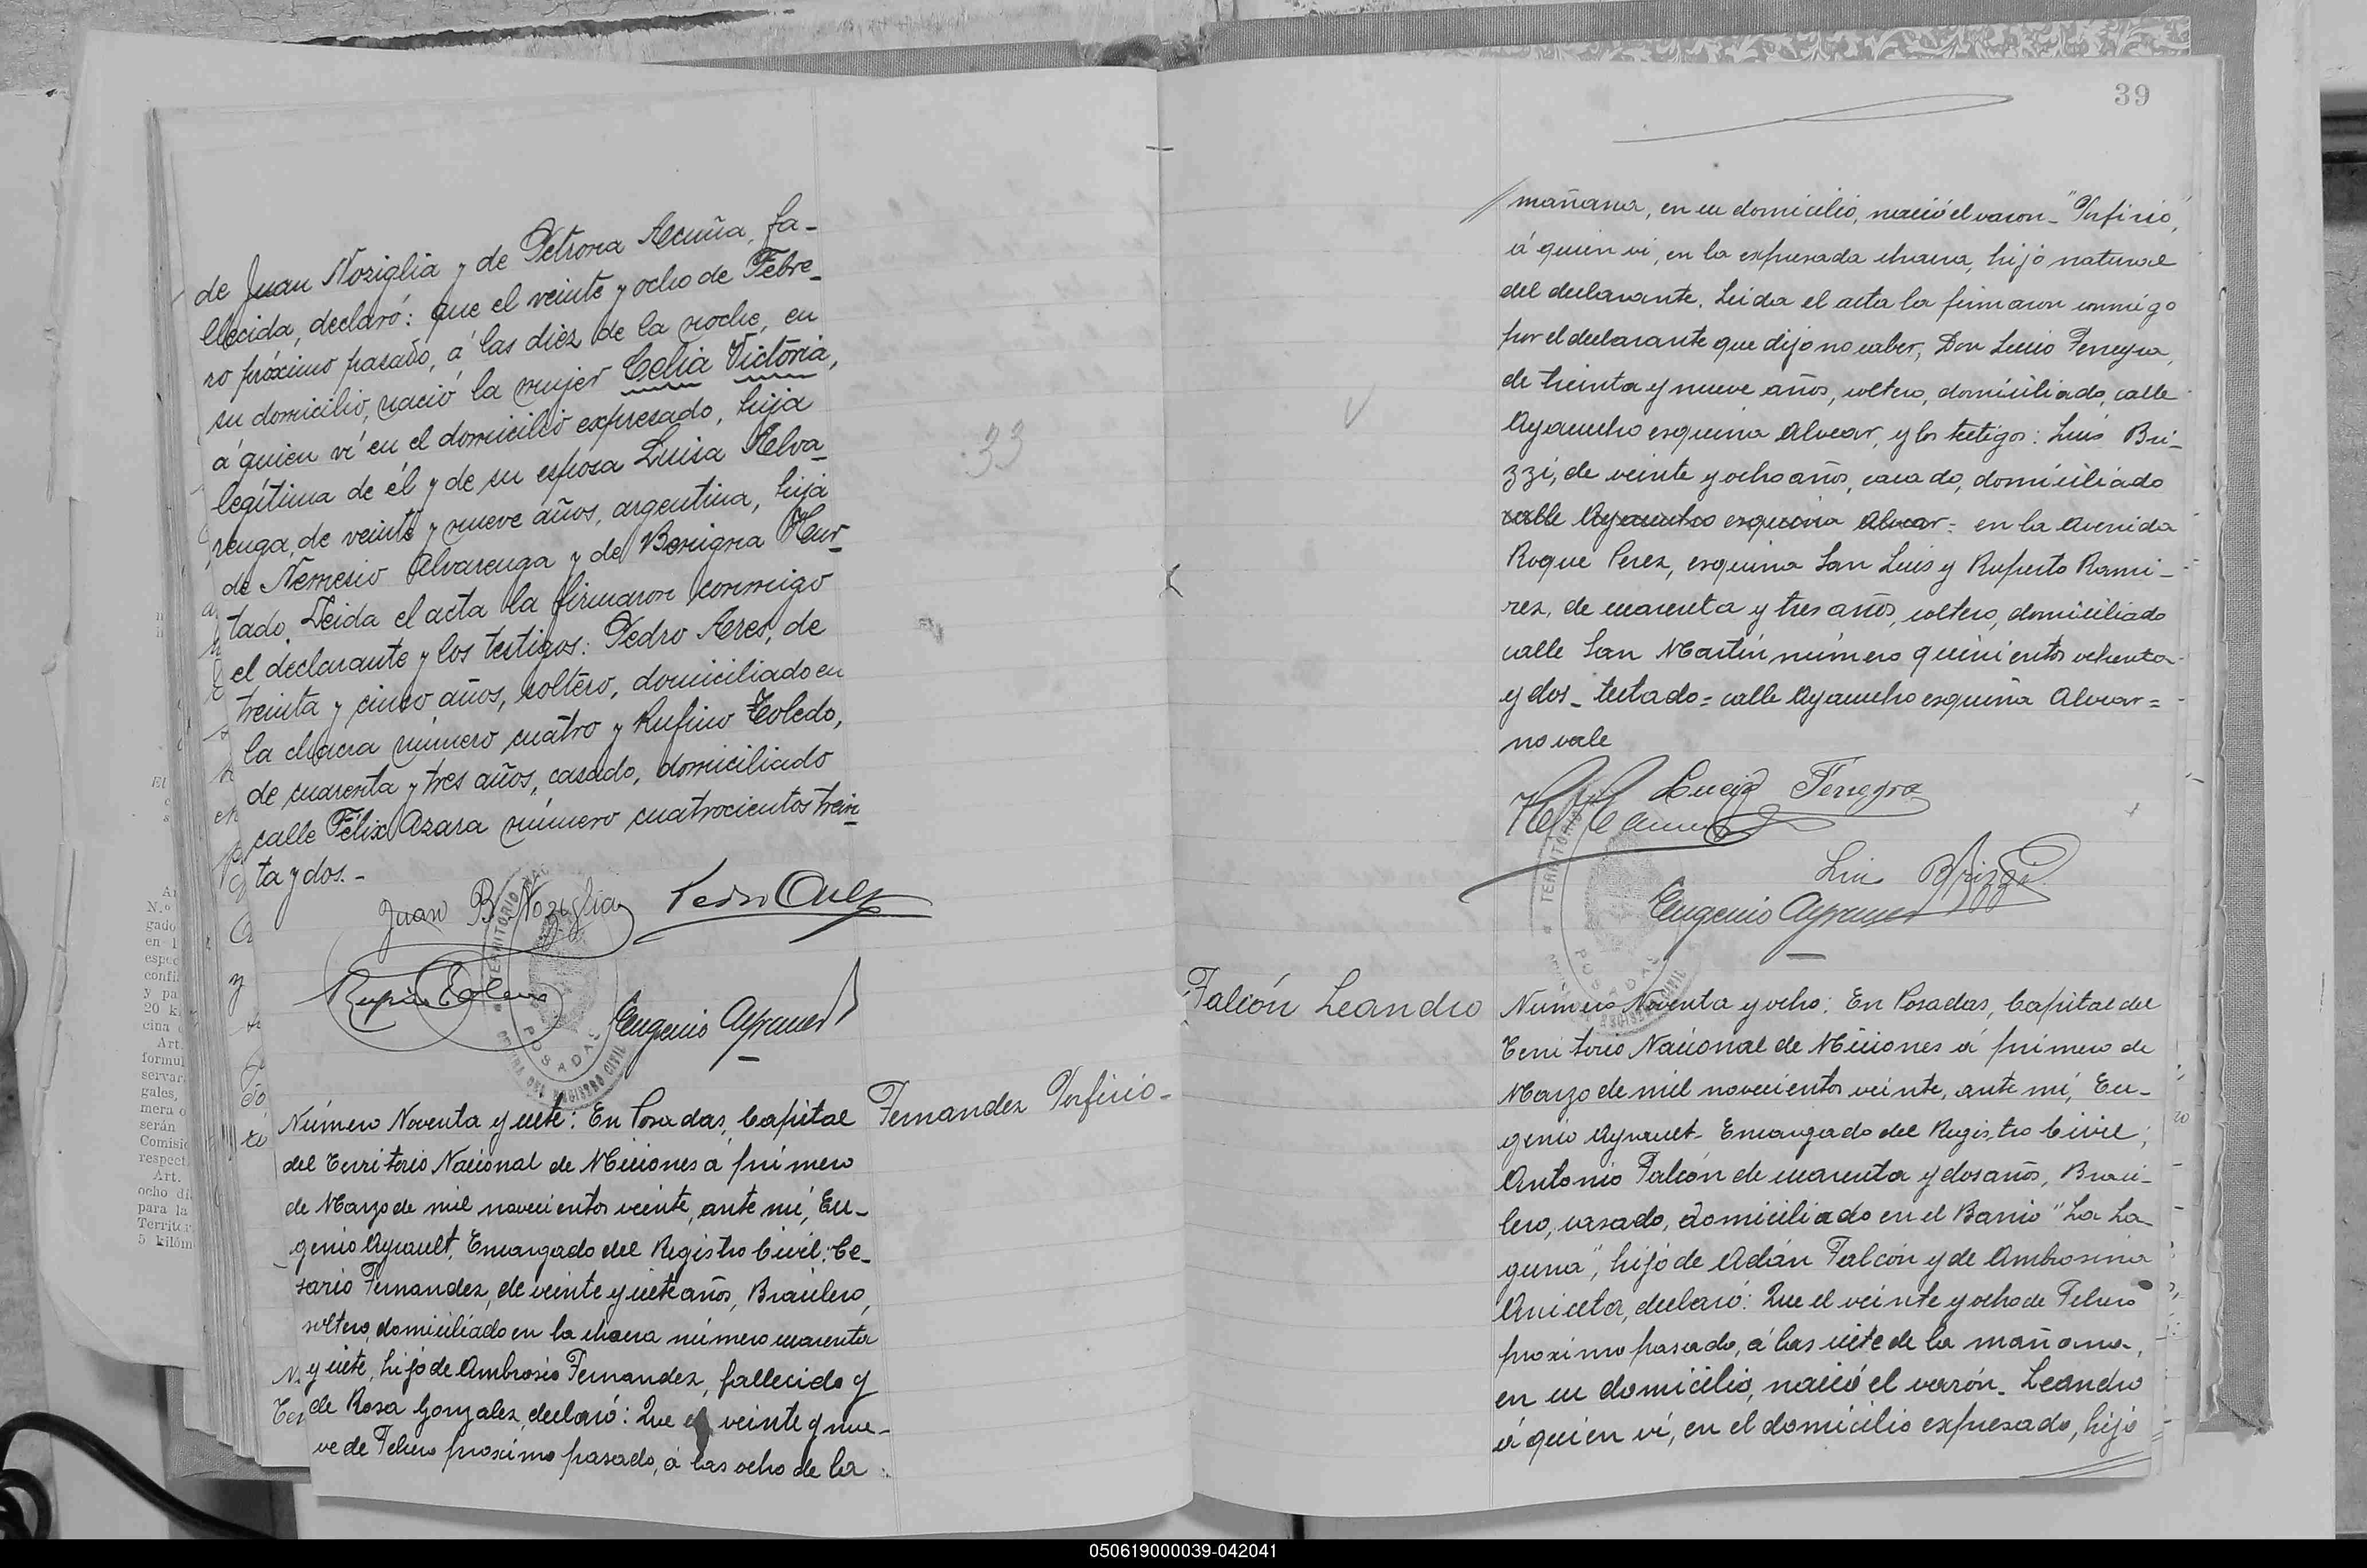 de Juan Noziglia y de Petrona Acuña, fa-
llecida, declaró: que el veinte y ocho de Febre-
ro próximo pasado, á las diez de la noche, en
su domicilio, nació la mujer Celia Victoria,
á quien ví en el domicilio expresado, hija
legítima de él y de su esposa Luisa Alva-
renga, de veinte y nueve años, argentina, hija
de Nemesio Alvarenga y de Benigna Hur-
tado. Leida el acta la firmaron conmigo
el declarante y los testigos: Pedro Ares, de
treinta y cinco años, soltero, domiciliado en
la chacra número cuatro y Rufino Toledo,
de cuarenta y tres años, casado, domiciliado
calle Félix Azara número cuatrocientos trein-
ta y dos.-
Juan B. Noziglia
Pedro Ares
Rufino Toledo
Eugenio Ayrault
Fernandez Porfirio-
Número Noventa y siete: En Posadas, Capital
del Territorio Nacional de Misiones á primero
de Marzo de mil novecientos veinte, ante mí, Eu-
genio Ayrault, Encargado del Registro Civil: Ce-
sario Fernandez, de veinte y siete años, Brasilero,
soltero, domiciliado en la chacra número cuarenta
y siete, hijo de Ambrosio Fernandez, fallecido y
de Rosa Gonzalez, declaró: Que el veinte y nue-
ve de Febrero proximo pasado, á las ocho de la
33
39
mañana, en su domicilio, nació el varon- "Porfirio",
á quien vi, en la expresada chacra, hijo natural
del declarante. Leida el acta la firmaron conmigo
por el declarante que dijo no saber, Don Lucio Ferreyra,
de treinta y nueve años, soltero, domiciliado, calle
Ayacucho esquina Alvear, y los testigos: Luis Bri-
zzi, de veinte y ocho años, casado, domiciliado
calle Ayacucho esquina Alvear= en la Avenida
Roque Perez, esquina San Luis y Ruperto Rami-
rez, de cuarenta y tres años, soltero, domiciliado
calle San Martín número quinientos ochenta
y dos- testado= calle Ayacucho esquina Alvear=
no vale
Lucio Ferreyra
Luis Brizzi
Eugenio Ayrault
Falcón Leandro
Número Noventa y ocho: En Posadas, Capital del
Territorio Nacional de Misiones á primero de
Marzo de mil novecientos veinte, ante mí, Eu-
genio Ayrault- Encargado del Registro Civil;
Antonio Falcón de cuarenta y dos años, Brasi-
lero, casado, domiciliado en el Barrio "La La-
guna", hijo de Adán Falcón y de Ambrosina
Aniceta, declaró: Que el veinte y ocho de Febrero
proximo pasado, á las siete de la mañana-,
en su domicilio, nació el varón- Leandro
á quien ví, en el domicilio expresado, hijo
050619000039-042041